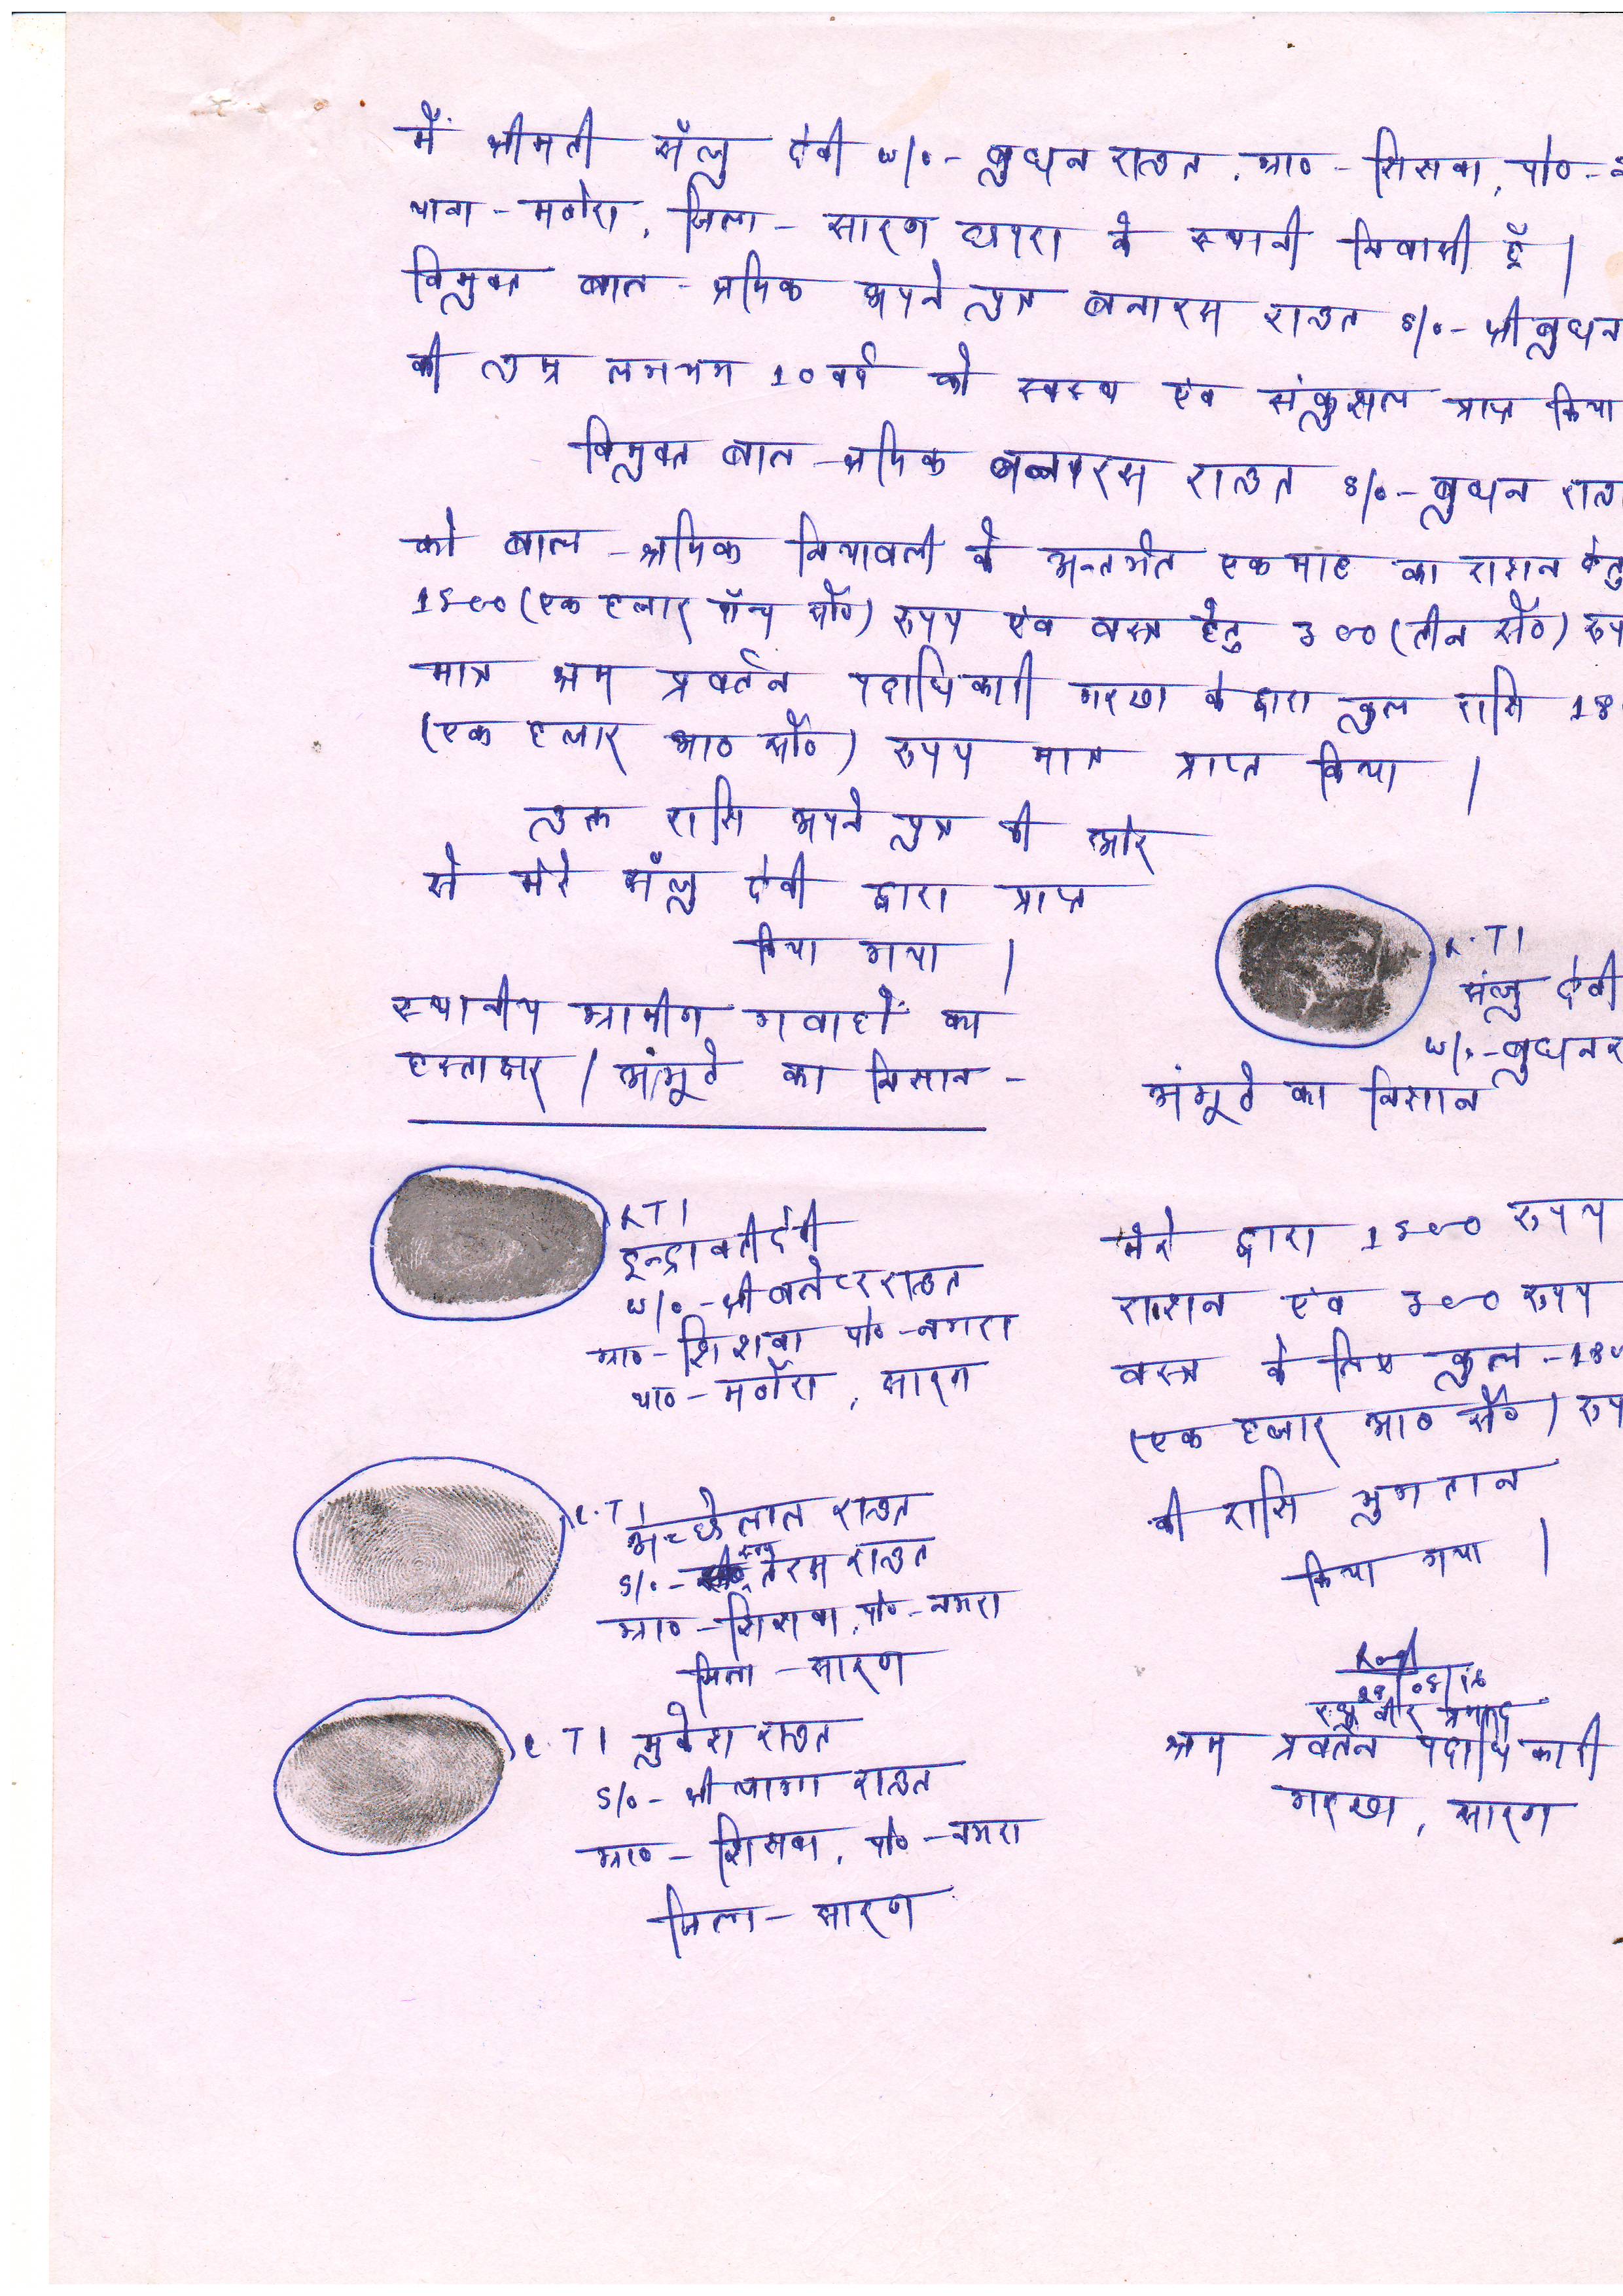 में श्रीमती मँजु देवी w/o - बुधन राउत, ग्रा० - सिसवा, पो० -
थाना - मढौरा, जिला - सारण छपरा के स्थानी निवासी हूँ ।
विमुक्त बाल - श्रमिक अपने पुत्र बनारस राउत s/o - श्री बुधन
की उम्र लगभग 10 वर्ष को स्वस्थ एंव संकुसल प्राप्त किया
विमुक्त बाल - श्रमिक बनारस राउत s/o - बुधन राउ
को बाल - श्रमिक नियावली के अन्तर्गत एक माह का राशन हेतु
1500 (एक हजार पाँच सौ०) रुपय एंव वस्त्र हेतु 300 (तीन सौ०) रुप
मात्र श्रम प्रवर्तन पदाधिकारी गरखा के द्वारा कुल राशि 18
(एक हजार आठ सौ०) रुपय मात्र प्राप्त किया ।
उक्त रासि अपने पुत्र की ओर
से मेरे मँजु देवी द्वारा प्राप्त
किया गया ।
R.T I
मंजु देवी
w/o - बुधन र
अंगूठे का निसान
स्थानीय ग्रामीण गवाहों का
हस्ताक्षर / अंगूठे का निसान -
R T I
इन्द्रावती देवी
w/o - श्री राउत
ग्रा० - शिशवा पो० - नगरा
था० - मढौरा, सारण
L. T I
अच्छेलाल राउत
s/o - राउत
ग्रा० - शिसवा, पो० - नगरा
जिला - सारण
L. T I मुकेश राउत
s/o - श्री राउत
ग्रा० - शिसवा, पो० - नगरा
जिला - सारण
मेरे द्वारा 1500 रुपय
राशन एंव 300 रुपय
वस्त्र के लिए कुल - 180
(एक हजार आठ सौ०) रुप
की रासि भुगतान
किया गया ।
प्रसाद
श्रम प्रवर्तन पदाधिकारी
गरखा, सारण